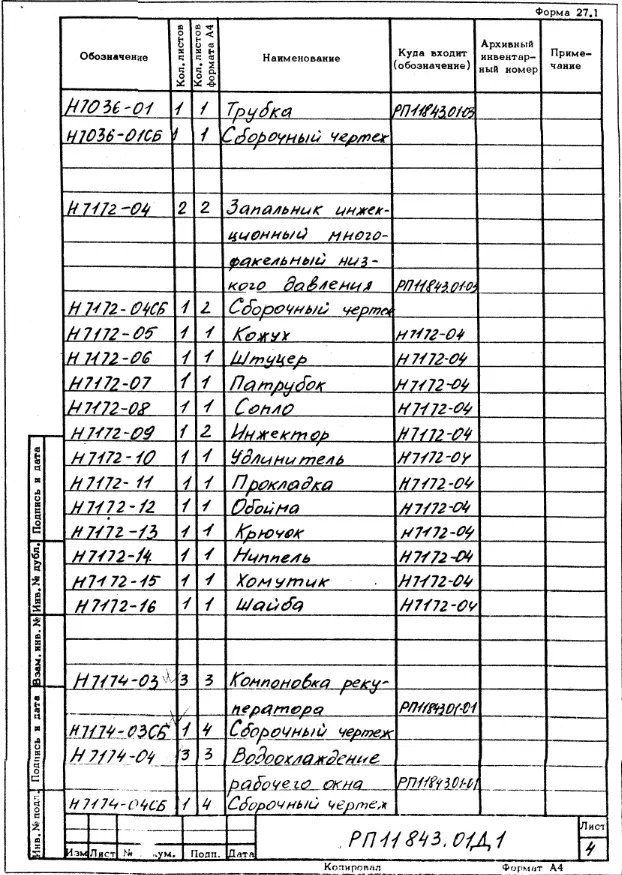 Форма 27.1
Обозначение Кол. листов Кол. листов формата А4 Наименование Куда входит (обозначение) Архивный инвентарный номер Примечание
Н7036-01 1 1 Трубка РП11843.01-03
Н7036-01СБ 1 1 Сборочный чертеж
Н7172-04 2 2 Запальник инжек-
ционный много-
факельный низ-
кого давления РП11843.01-03
Н7172-04СБ 1 2 Сборочный чертеж
Н7172-05 1 1 Кожух Н7172-04
Н7172-06 1 1 Штуцер Н7172-04
Н7172-07 1 1 Патрубок Н7172-04
Н7172-08 1 1 Сопло Н7172-04
Н7172-09 1 2 Инжектор Н7172-04
Н7172-10 1 1 Удлинитель Н7172-04
Н7172-11 1 1 Прокладка Н7172-04
Н7172-12 1 1 Обойма Н7172-04
Н7172-13 1 1 Крючок Н7172-04
Н7172-14 1 1 Ниппель Н7172-04
Н7172-15 1 1 Хомутик Н7172-04
Н7172-16 1 1 Шайба Н7172-04
Н7174-03 3 3 Компоновка реку-
ператора РП11843.01-01
Н7174-03СБ 1 4 Сборочный чертеж
Н7174-04 3 3 Водоохлаждение
рабочего окна РП11843.01-01
Н7174-04СБ 1 4 Сборочный чертеж
Инв. № подл. Подпись и дата Взам. инв. № Инв. № дубл. Подпись и дата
РП11843.01Д1
Лист
4
Изм Лист № ум. Подп. Дата
Копировал Формат А4